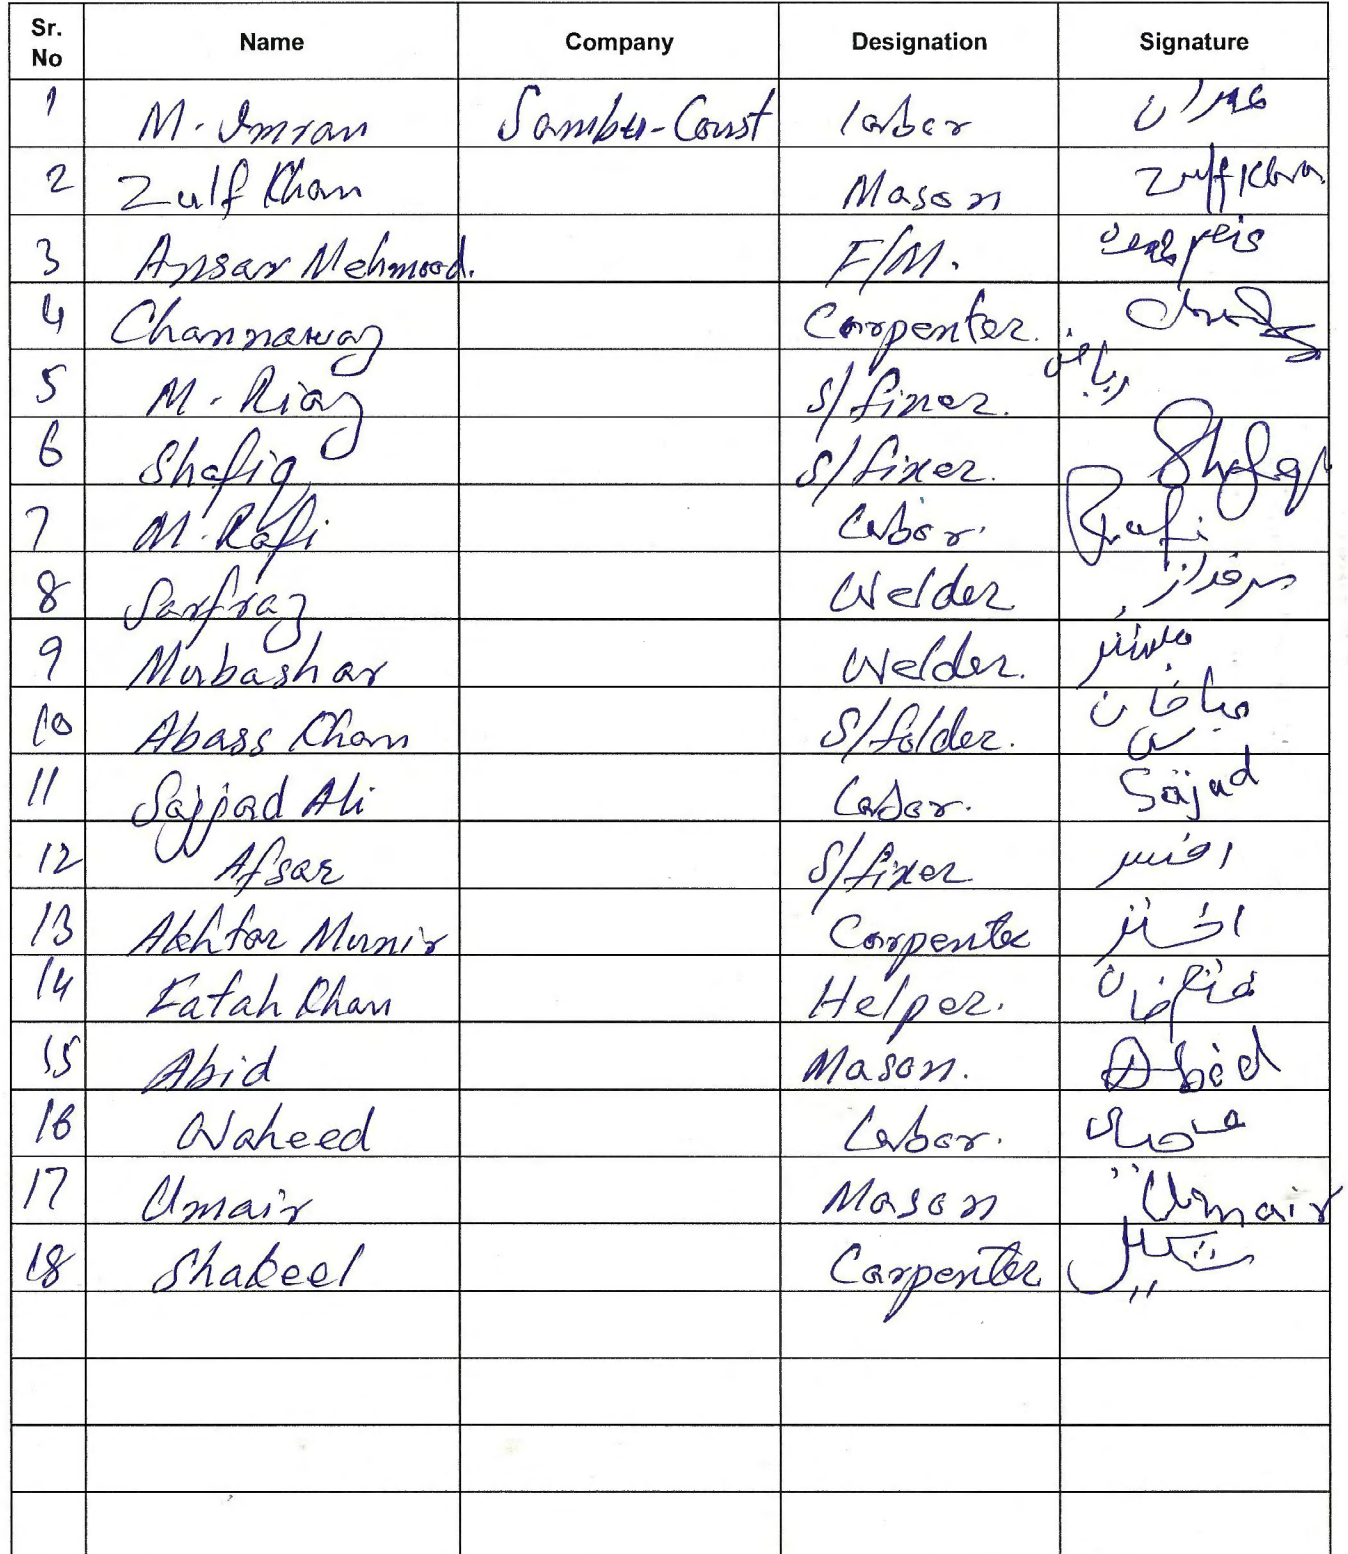 Sr. No Name Company Designation Signature
1 M. Imran Sambu-Const labor عمران
2 Zulf Khan Mason Zulf Khan
3 Ansar Mehmood. F/M.
4 Channawaz Carpenter.
5 M. Riaz S/fixer. ریاض
6 Shafiq S/fixer. Shafeq
7 M. Rafi Labor. Rafi
8 Sarfraz Welder سرفراز
9 Mubashar Welder. مبشر
10 Abass Khan S/folder. عباس خان
11 Sajjad Ali Labor. Sajad
12 Afsar S/fixer افسر
13 Akhtar Munir Carpenter اختر
14 Fatah Khan Helper. فتح خان
15 Abid Mason. Abid
16 Waheed Labor.
17 Umair Mason Umair
18 Shakeel Carpenter شکیل